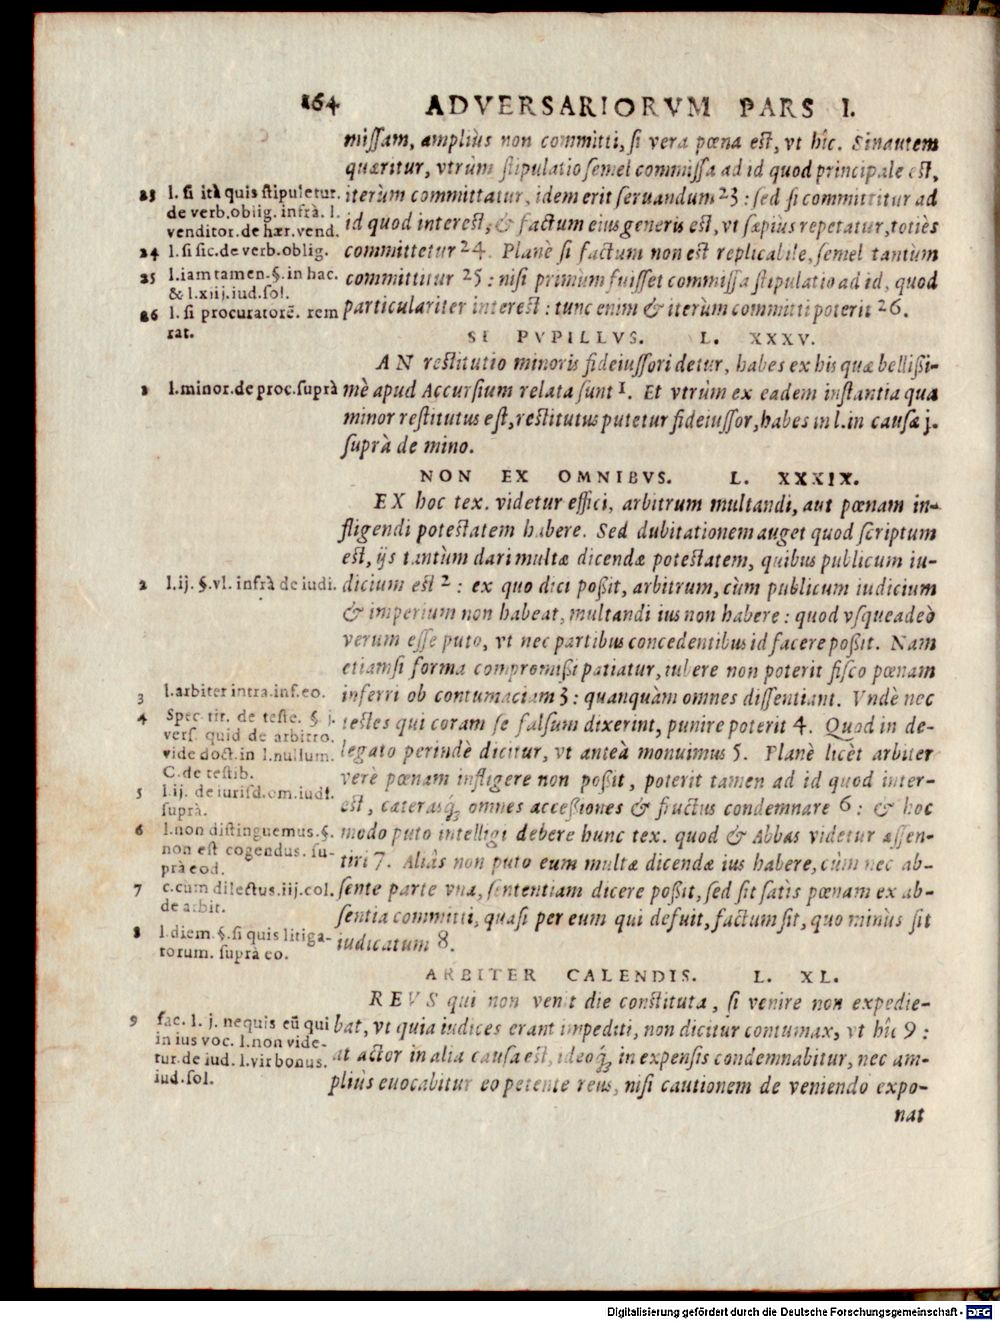 164 ADVERSARIORVM PARS I.
missam, ampliùs non committi, si vera pœna est, vt hîc. Sinautem
quæritur, vtrùm stipulatio semel commissa ad id quod principale est,
iterùm committatur, idem erit seruandum 23 : sed si committitur ad
id quod interest, & factum eius generis est, vt sæpiùs repetatur, totiès
committetur 24. Planè si factum non est replicabile, semel tantùm
committitur 25 : nisi primùm fuisset commissa stipulatio ad id, quod
particulariter interest : tunc enim & iterùm committi poterit 26.
23 l. si ità quis stipuletur.
de verb. oblig. infrà. l.
venditor. de hær. vend.
24 l. si sic. de verb. oblig.
25 l. iam tamen. §. in hac.
& l. xiij. iud. sol.
26 l. si procuratorē. rem
rat.
SI PVPILLVS. L. XXXV.
AN restitutio minoris fideiussori detur, habes ex his quæ bellißi-
mè apud Accursium relata sunt 1. Et vtrùm ex eadem instantia qua
minor restitutus est, restitutus putetur fideiussor, habes in l. in causæ j.
suprà de mino.
1 l. minor. de proc. suprà
NON EX OMNIBVS. L. XXXIX.
EX hoc tex. videtur effici, arbitrum multandi, aut pœnam in-
fligendi potestatem habere. Sed dubitationem auget quod scriptum
est, ijs tantùm dari multæ dicendæ potestatem, quibus publicum iu-
dicium est 2 : ex quo dici poßit, arbitrum, cùm publicum iudicium
& imperium non habeat, multandi ius non habere : quod vsqueadeò
verum esse puto, vt nec partibus concedentibus id facere poßit. Nam
etiamsi forma compromißi patiatur, iubere non poterit fisco pœnam
inferri ob contumaciam 3 : quanquàm omnes dissentiant. Vndè nec
testes qui coram se falsum dixerint, punire poterit 4. Quod in de-
legato perindè dicitur, vt anteà monuimus 5. Planè licèt arbiter
verè pœnam infligere non poßit, poterit tamen ad id quod inter-
est, cæterasq́; omnes acceßiones & fructus condemnare 6 : & hoc
modo puto intelligi debere hunc tex. quod & Abbas videtur assen-
tiri 7. Aliâs non puto eum multæ dicendæ ius habere, cùm nec ab-
sente parte vna, sententiam dicere poßit, sed sit satìs pœnam ex ab-
sentia committi, quasi per eum qui defuit, factum sit, quo minùs sit
iudicatum 8.
2 l. ij. §. vl. infrà de iudi.
3 l. arbiter intra. inf. eo.
4 Spec. tit. de teste. §. j.
vers. quid de arbitro.
vide doct. in l. nullum.
C. de testib.
5 l. ij. de iurisd. om. iud.
suprà.
6 l. non distinguemus. §.
non est cogendus. su-
prà eod.
7 c. cùm dilectus. iij. col.
de arbit.
8 l. diem. §. si quis litiga-
torum. suprà eo.
ARBITER CALENDIS. L. XL.
REVS qui non venit die constituta, si venire non expedie-
bat, vt quia iudices erant impediti, non dicitur contumax, vt hîc 9 :
at actor in alia causa est, ideoq́; in expensis condemnabitur, nec am-
pliùs euocabitur eo petente reus, nisi cautionem de veniendo expo-
9 fac. l. j. nequis eū qui
in ius voc. l. non vide-
tur. de iud. l. vir bonus.
iud. sol.
nat
Digitalisierung gefördert durch die Deutsche Forschungsgemeinschaft - DFG